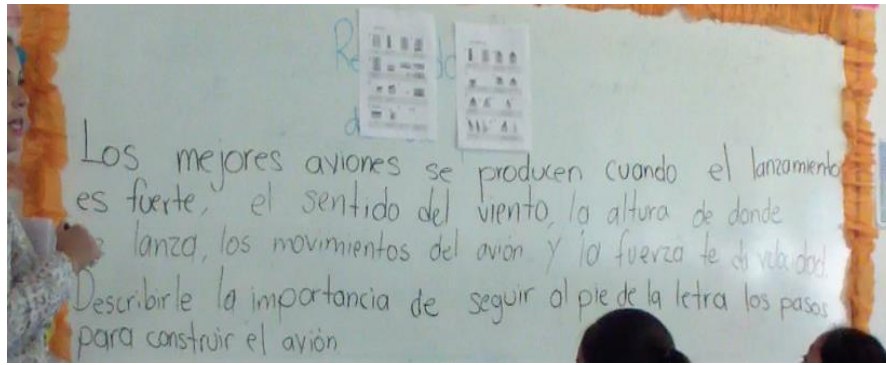 Los mejores aviones se producen cuando el lanzamiento
es fuerte, el sentido del viento, la altura de donde
lanza, los movimientos del avión y la fuerza te da velocidad.
Describirle la importancia de seguir al pie de la letra los pasos
para construir el avión